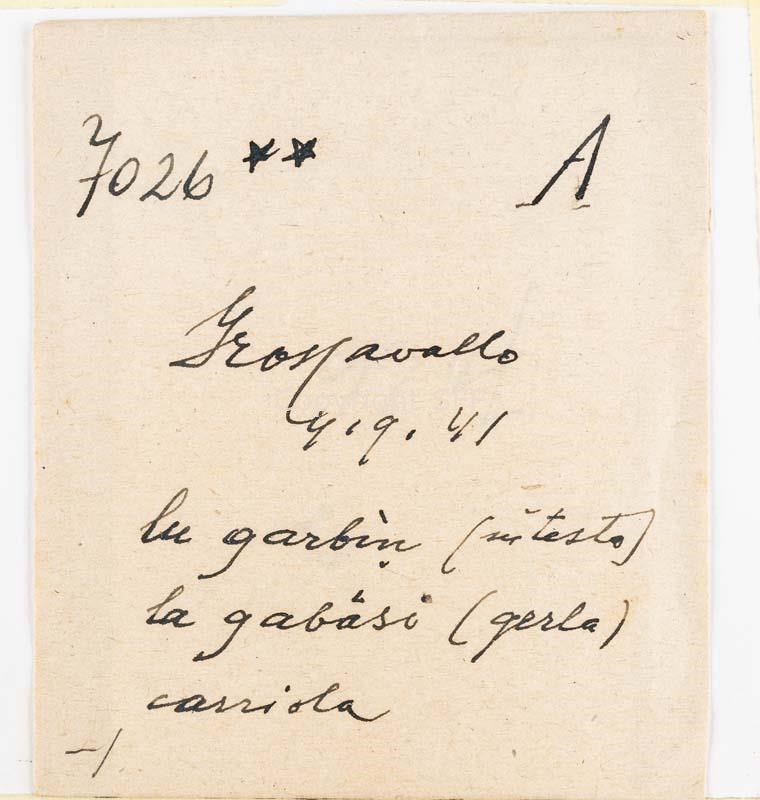 7026 ** A
Groscavallo
4.9.41
lu garbiṇ (in testo)
la gabäsi (gerla)
carriola
-/